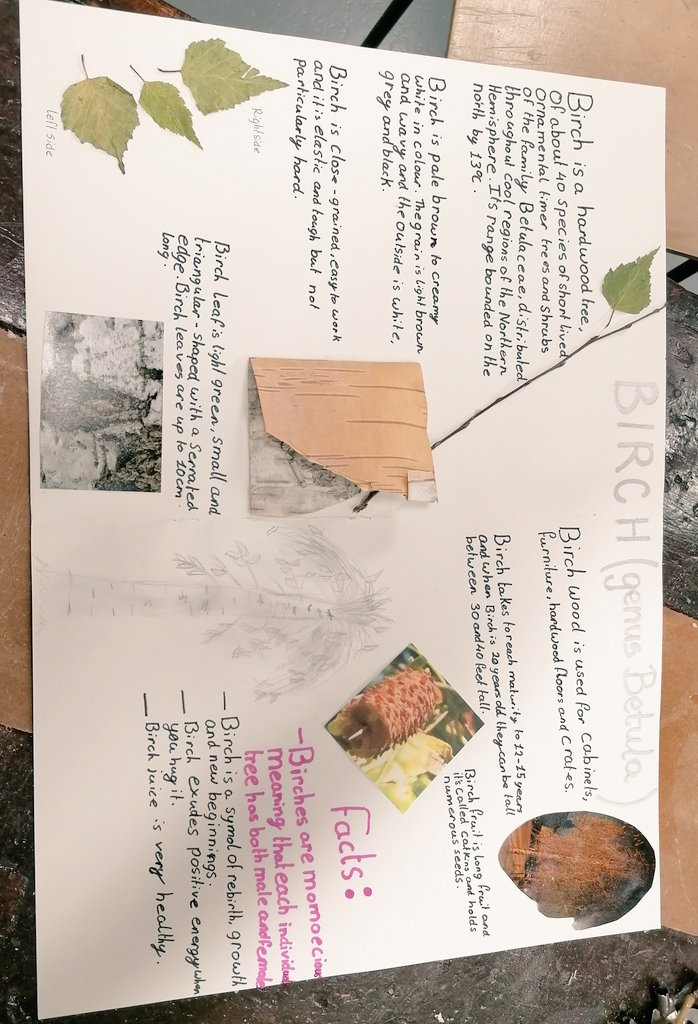 BIRCH (genus Betula)
Birch is a hardwood tree,
of about 40 species of short lived
ornamental timer trees and shrubs
of the family Betulaceae, distributed
throughout cool regions of the Northern
Hemisphere. It's range bounded on the
north by 13°c.
Birch is pale brown to creamy
white in colour. The grain is light brown
and wavy and the outside is white,
grey and black.
Birch is close-grained, easy to work
and it's elastic and tough but not
particularly hard.
Rightside
Left side
Birch leaf is light green, small and
triangular-shaped with a serrated
edge. Birch leaves are up to 10cm
long.
Birch wood is used for cabinets,
furniture, hardwood floors and crates.
Birch takes to reach maturity to 12-15 years
and when Birch is 20 years old they can be tall
between 30 and 40 feet tall.
Birch fruit is long fruit and
it's called catkins and holds
numerous seeds.
Facts:
- Birches are momoecious
meaning that each individual
tree has both male and female
- Birch is a symol of rebirth, growth
and new beginnings.
- Birch exudes positive energy when
you hug it.
- Birch juice is very healthy.